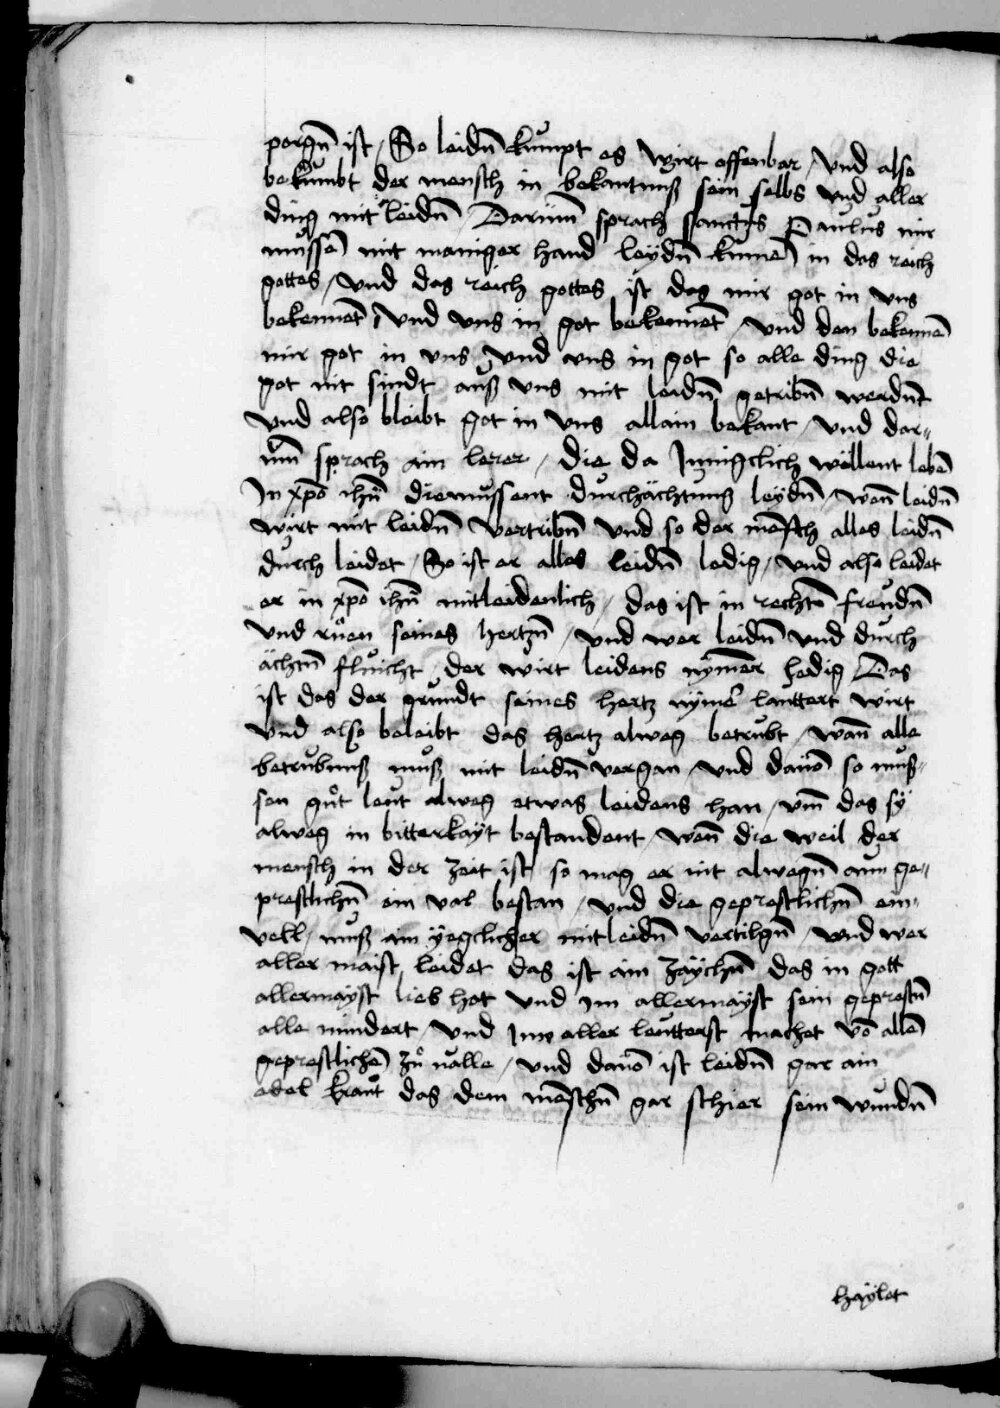 porgñ ist / So leidñ kumpt es wirt offenbar / Vnd also
bekumbt der mensch in bekantnuß sein selbs vnd aller
ding mit leidñ / Darumm sprach sanctus Paulus mir
mussẽ mit maniger hand leydñ kumẽ in das reich
gottes / Vnd das reich gottes ist das mir got in vns
bekennẽt / Vnd vns in got bekennẽt / Vnd den bekennẽ
mir got in vns Vnd vns in got so alle ding die
got nit sindt auß vns mit leidñ getribñ werdñt
Vnd also bleibt got in vns allain bekant / Vnd dar„
um̃ sprach ain lerer / Die da Innigclich wellent lebẽ
In xp̃o ih̃u die mussent durchächtung leydñ / wañ leidñ
wirt mit leidñ vertribñ Vnd so der mẽsch alles leidñ
durch leidet / So ist er alles leidñ ledig / Vnd also leidet
er in xp̃o ih̃u mitleidenlich / das ist in rechtẽ freudñ
Vnd ruͦen seines hertzñ / Vnd wer leidñ Vnd durch
ächtñ fluicht / der wirt leidens nym̃er ledig Das
ist das der grundt seines hertz nymẽr lauttert wirt
Vnd also beleibt das hertz alweg betrubt / wañ alle
betrubnuß muß mit leidñ vergan / Vnd dauõ so muß„
sen guͦt leut alweg etwas leidens han / vm̃ das sy
alweg in bitterkayt bestandent / wañ die weil der
mensch in der zeit ist so mag er nit alwegñ ann ge„
prestlichñ ein val bestan / Vnd die geprestlichñ ein„
vell / muß ain yegclicher mit leidñ vertilgñ / Vnd wer
aller maist leidet das ist ain zaychñ das in gott
allermayst lieb hat Vnd im allermayst sein geprestñ
alle mindert / Vnd Inn aller leutterst machet võ allẽ
geprestlichẽ zuͦ ualle / Vnd dauõ ist leidñ gar ain
edel kraut das dem mẽschñ gar schier sein wundñ
haylet